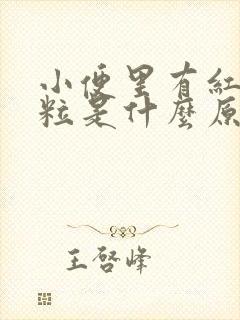 小便里有紅
粒是什麼原
王啓峰